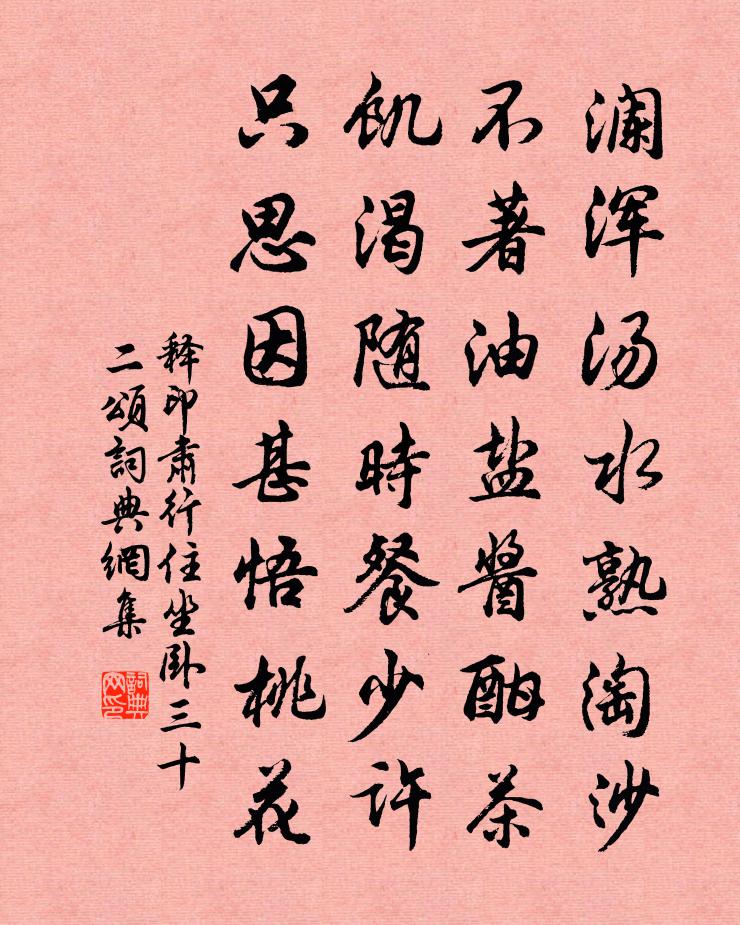 澜浑汤水熟淘沙
不著油盐醬茶
飢渴随時餐少許
只思因甚悟桃花
释印肃行住坐卧三十
二頌詞典網集
詞典网印